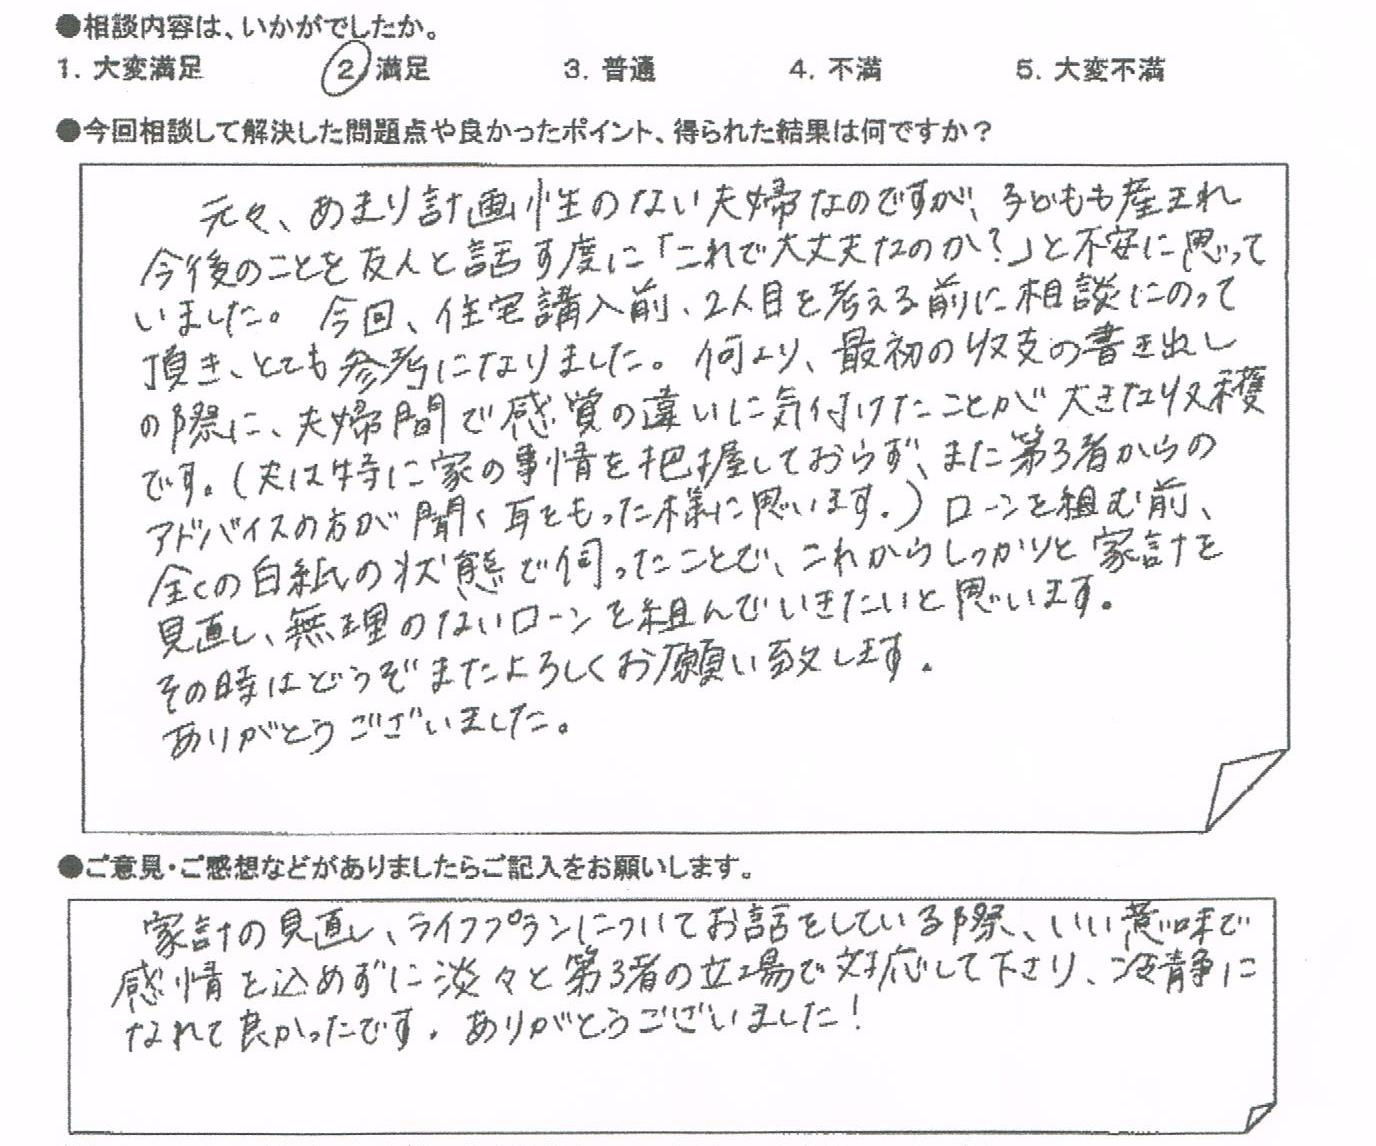 ●相談内容は、いかがでしたか。
1. 大変満足 2. 満足 3. 普通 4. 不満 5. 大変不満
●今回相談して解決した問題点や良かったポイント、得られた結果は何ですか？
元々、あまり計画性のない夫婦なのですが、子どもも産まれ
今後のことを友人と話す度に「これで大丈夫なのか？」と不安に思って
いました。今回、住宅購入前、2人目を考える前に相談にのって
頂き、とても参考になりました。何より、最初の収支の書き出し
の際に、夫婦間で感覚の違いに気付けたことが大きな収穫
です。(夫は特に家の事情を把握しておらず、また第3者からの
アドバイスの方が聞く耳をもった様に思います。)ローンを組む前、
全くの白紙の状態で伺ったことで、これからしっかりと家計を
見直し、無理のないローンを組んでいきたいと思います。
その時はどうぞまたよろしくお願い致します。
ありがとうございました。
●ご意見・ご感想などがありましたらご記入をお願いします。
家計の見直し、ライフプランについてお話をしている際、いい意味で
感情を込めずに淡々と第3者の立場で対応して下さり、冷静に
なれて良かったです。ありがとうございました！